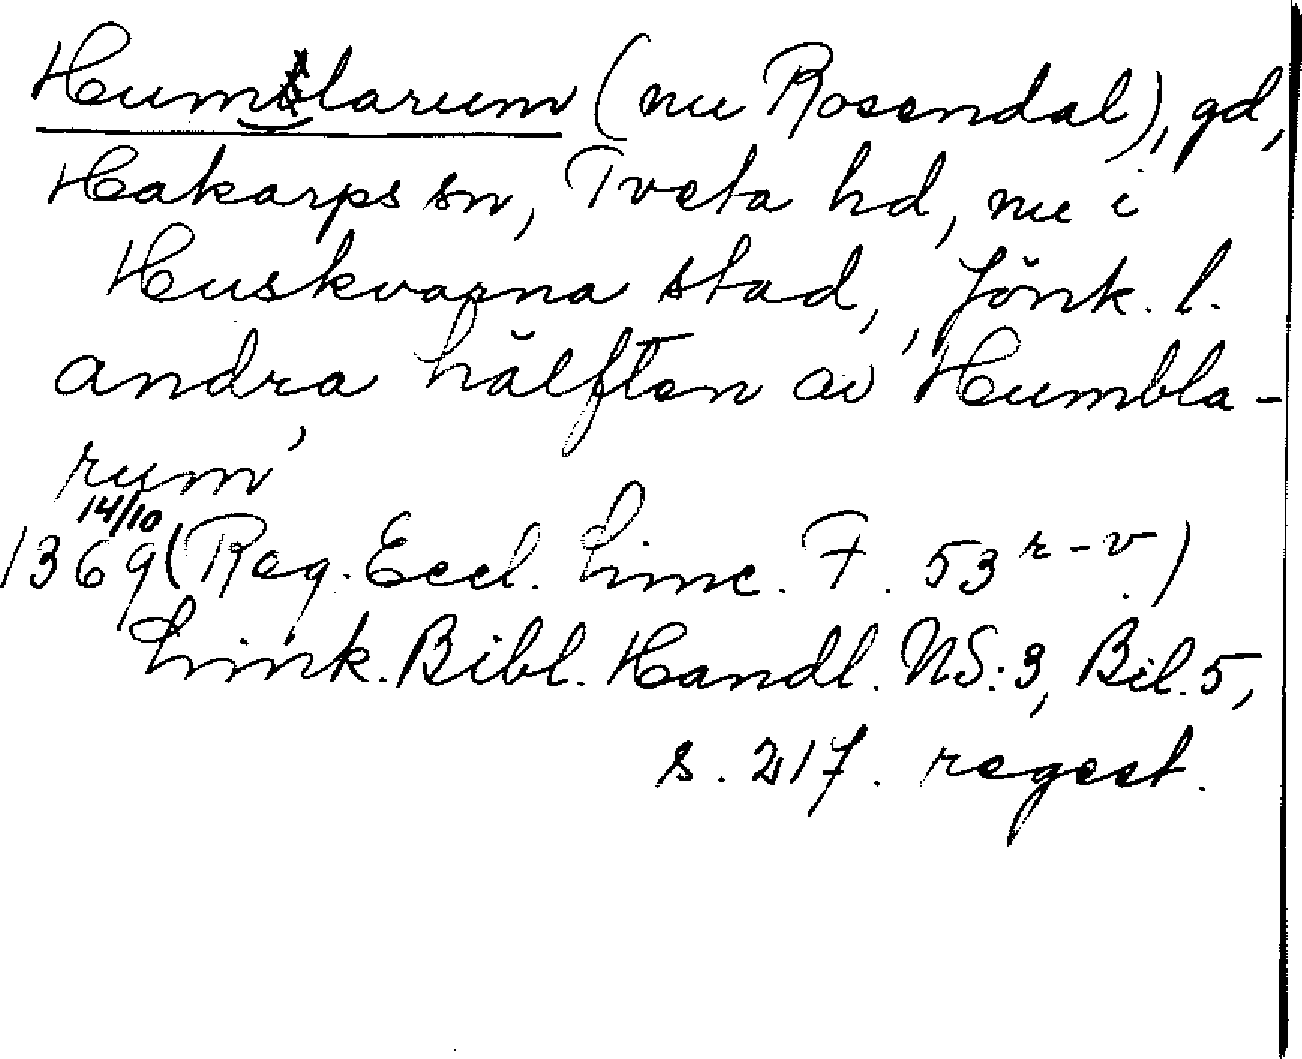 Humblarum (nu Rosendal), gd,
Hakarps sn, Tveta hd, nu i
Huskvarna stad, Jönk. l.
andra hälften av 'Humbla-
rum'
1369 14/10 (Reg. Eccl. Linc. F. 53 r-v.)
Link. Bibl. Handl. NS:3, Bil. 5,
s. 217. regest.